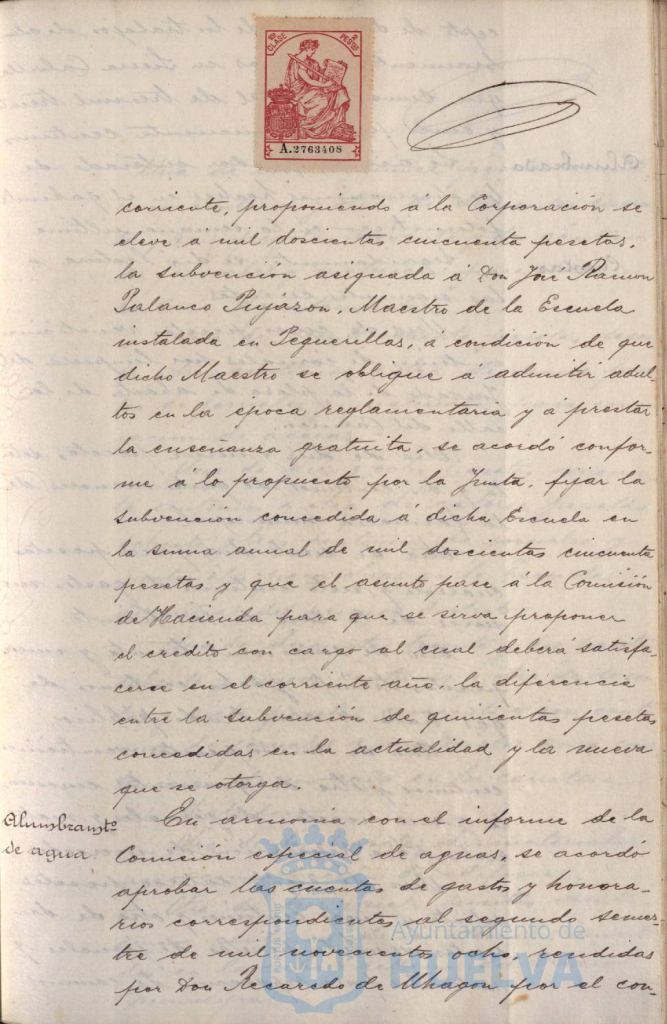 10ª CLASE PESETAS
A.2763408
corriente, proponiendo á la Corporación se
eleve á mil doscientas cincuenta pesetas,
la subvención asignada á Don José Ramon
Palanco Pujazon, Maestro de la Escuela
instalada en Peguerillas, á condición de que
dicho Maestro se obligue á admitir adul-
tos en la época reglamentaria y á prestar
la enseñanza gratuita, se acordó confor-
me á lo propuesto por la Junta, fijar la
subvención concedida á dicha Escuela en
la suma anual de mil doscientas cincuenta
pesetas y que el asunto pase á la Comisión
de Hacienda para que se sirva proponer
el crédito con cargo al cual deberá satisfa-
cerse en el corriente año, la diferencia
entre la subvención de quinientas pesetas
concedidas en la actualidad y la nueva
que se otorga.
Alumbramtº
de agua
En armonia con el informe de la
Comisión especial de aguas, se acordó
aprobar las cuentas de gastos y honora-
rios correspondientes al segundo semes-
tre de mil novecientos ocho, rendidas
por Don Recaredo de Uhagon por el con-
Ayuntamiento de
HUELVA